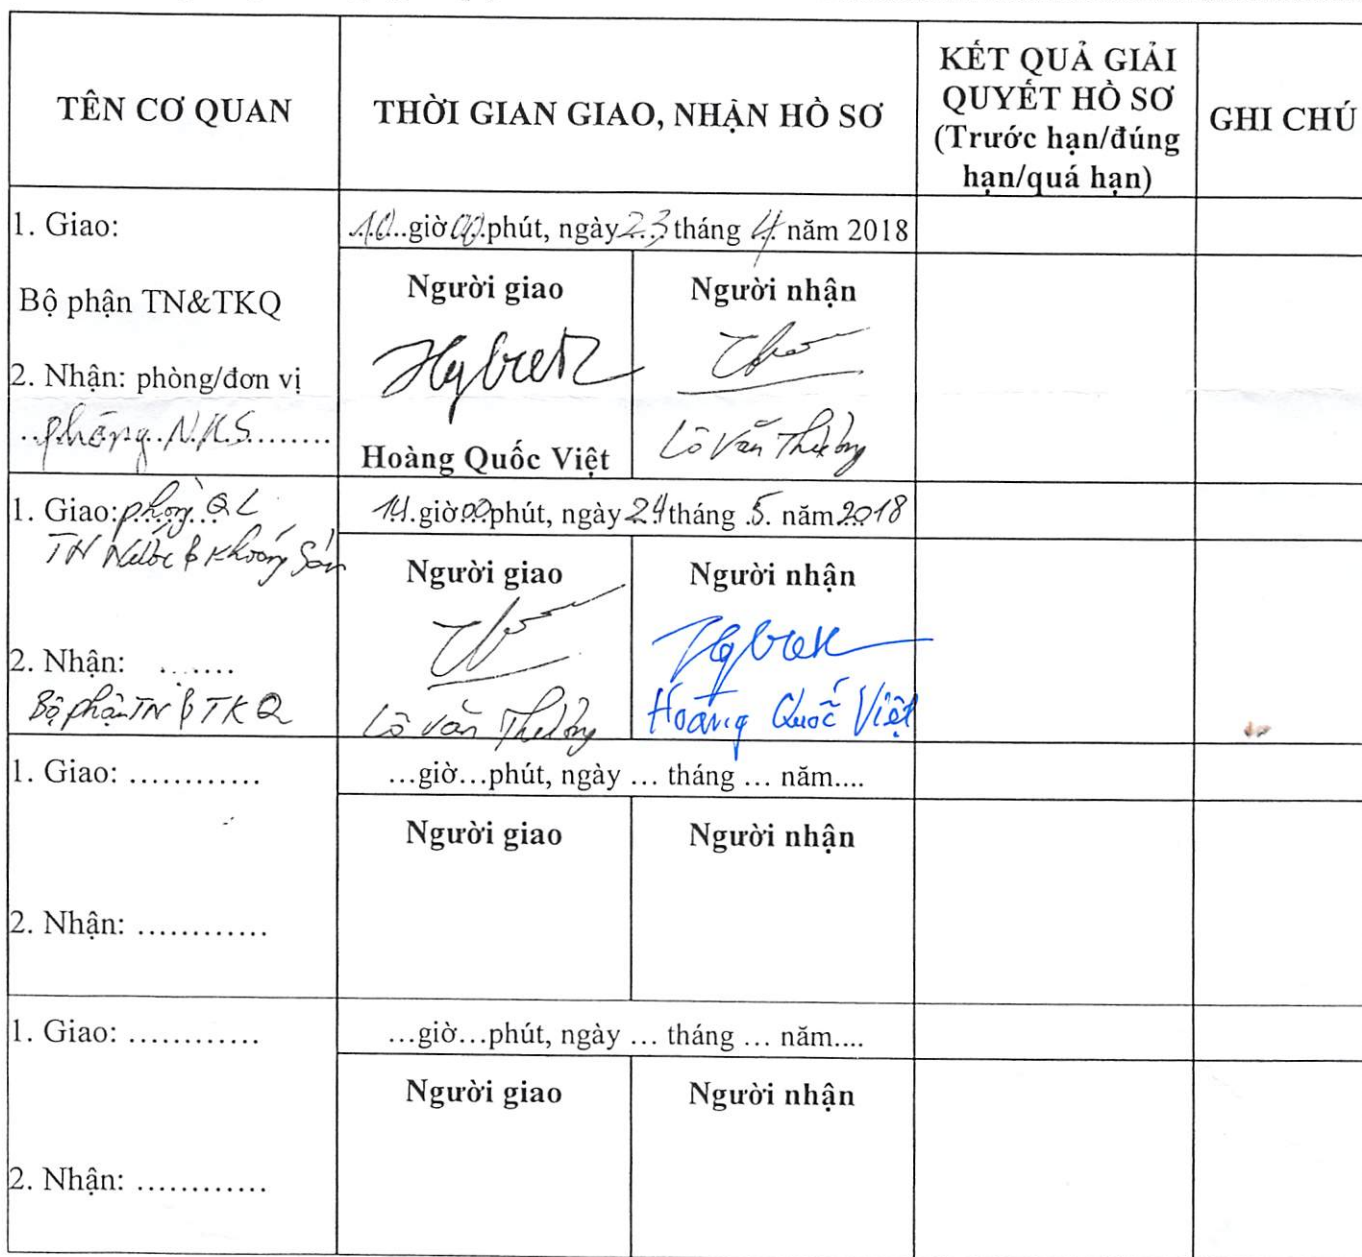 TÊN CƠ QUAN
THỜI GIAN GIAO, NHẬN HỒ SƠ
KẾT QUẢ GIẢI
QUYẾT HỒ SƠ
(Trước hạn/đúng
hạn/quá hạn)
GHI CHÚ
1. Giao:
Bộ phận TN&TKQ
2. Nhận: phòng/đơn vị
..phòng..N.KS........
10..giờ 00.phút, ngày 23 tháng 4 năm 2018
Người giao
Người nhận
Hoàng Quốc Việt
Lô Văn Thưởng
1. Giao: phòng QL
TN Nước & Khoáng Sản
2. Nhận: .......
Bộ phận TN & TKQ
14.giờ 00 phút, ngày 24 tháng .5. năm 2018
Người giao
Người nhận
Lô văn Thưởng
Hoàng Quốc Việt
1. Giao: ............
2. Nhận: ............
...giờ...phút, ngày ... tháng ... năm....
Người giao
Người nhận
1. Giao: ............
2. Nhận: ............
...giờ...phút, ngày ... tháng ... năm....
Người giao
Người nhận